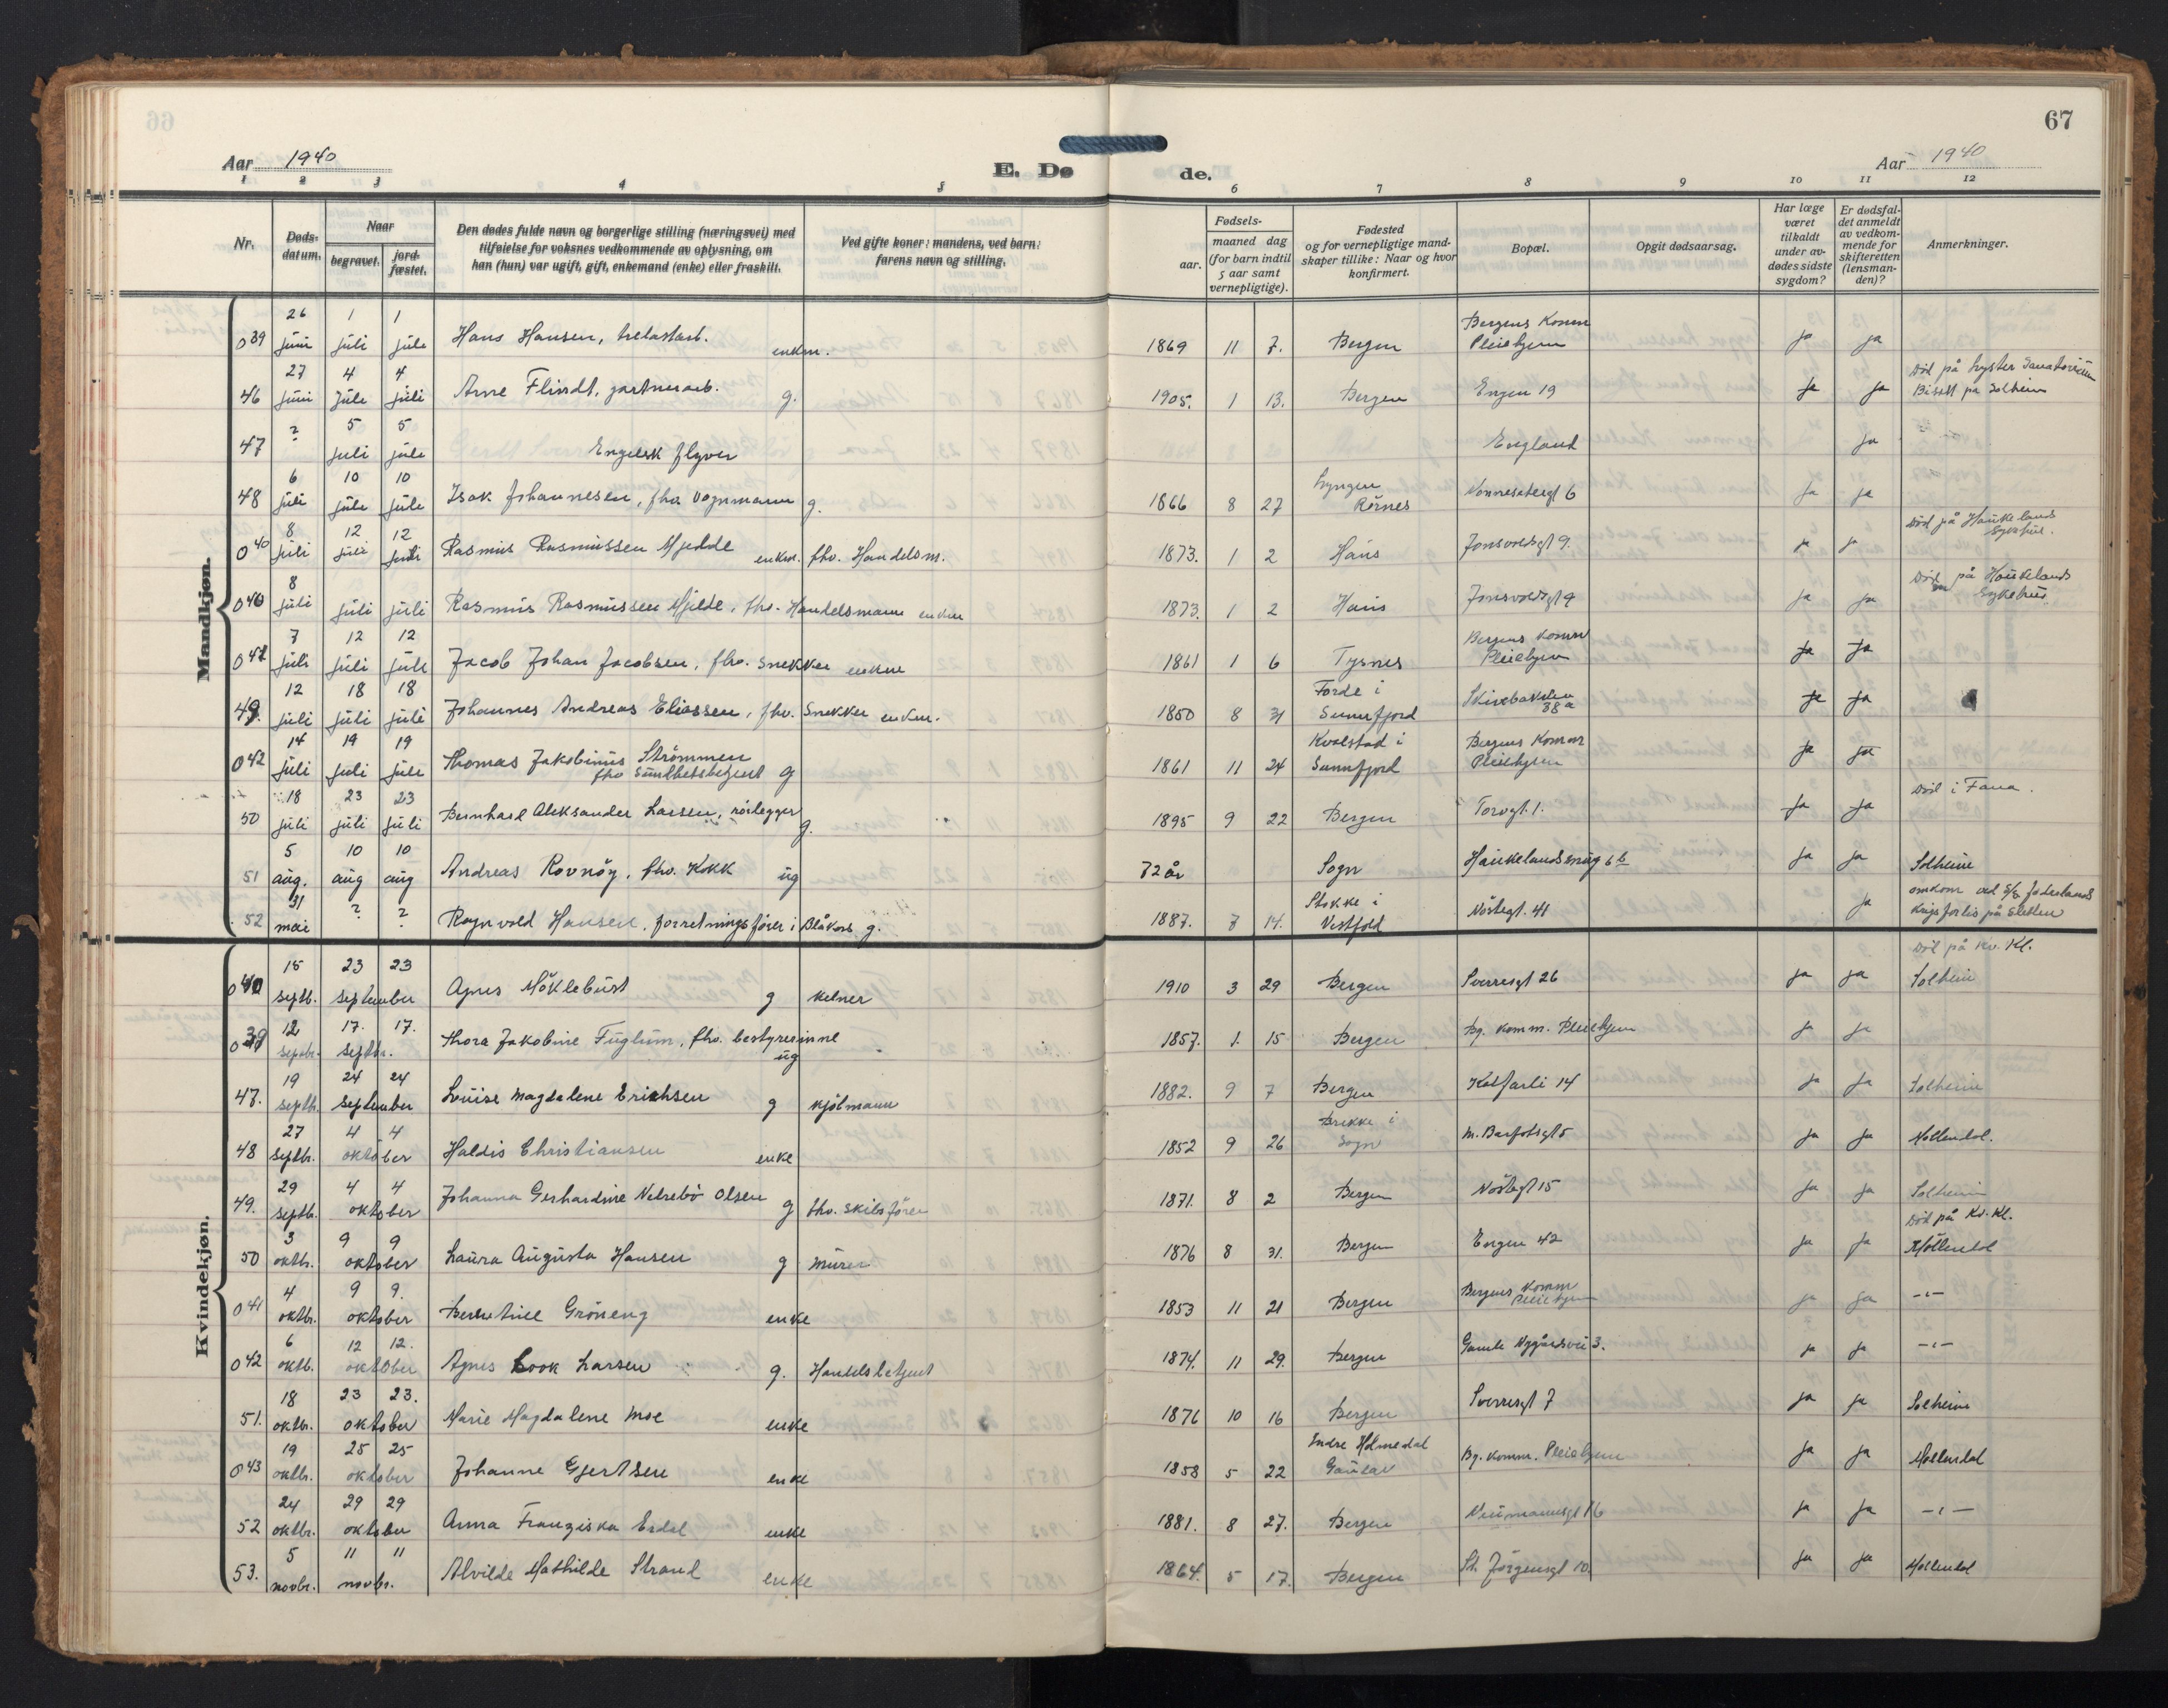 66
67
Aar 1940
E. Dø
de.
Aar 1940
1 2 3 4 5 6 7 8 9 10 11 12
Nr.
Døds-
datum.
Naar
begravet.
jord-
fæstet.
Den dødes fulde navn og borgerlige stilling (næringsvei) med
tilføielse for voksnes vedkommende av oplysning, om
han (hun) var ugift, gift, enkemand (enke) eller fraskilt.
Ved gifte koner: mandens, ved barn:
farens navn og stilling.
Fødsels-
aar.
maaned dag
(for barn indtil
5 aar samt
vernepligtige).
Fødested
og for vernepligtige mand-
skaper tillike: Naar og hvor
konfirmert.
Bopæl.
Opgit dødsaarsag.
Har læge
været
tilkaldt
under av-
dødes sidste
sygdom?
Er dødsfal-
det anmeldt
av vedkom-
mende for
skifteretten
(lensman-
den)?
Anmerkninger.
Mandkjøn.
039 26 juni 1 juli 1 juli Hans Hansen, trelastarb. enkm. 1869 11 7. Bergen Bergens Komm Pleiehjem ja ja
46 27 juni 4 juli 4 juli Arne Flindt, gartnerarb. g. 1905. 1 13. Bergen Engen 19 ja ja Död på Lyster Sanatorium Bisatt på Solheim
47 ? 5 juli 5 juli Engelsk flyver England ja
48 6 juli 10 juli 10 juli Isak Johannesen, fhv. vognmann g. 1866 8 27 Lyngen Rörnes Nonnesetergt 6 ja ja
040 8 juli 12 juli 12 juli Rasmus Rasmussen Mjelde enkm. fhv. Handelsm. 1873. 1 2 Haus Jonsvoldsgt 9. ja ja Död på Haukelands Sykehus.
040 8 juli juli juli Rasmus Rasmussen Mjelde, fhv. Handelsmann enkm 1873. 1 2 Haus Jonsvoldsgt 9 ja ja Död på Haukelands Sykehus.
041 7 juli 12 juli 12 juli Jacob Johan Jacobsen, fhv. Snekker enkm 1861 1 6 Tysnes Bergens Komm Pleiehjem ja ja
49. 12 juli 18 juli 18 juli Johannes Andreas Eliassen, fhv. Snekker enkm. 1850 8 31 Förde i Sunnfjord Skivebakken 38a ja ja
042 14 juli 19 juli 19 juli Thomas Jakobinus Strömmen fhv Sundhetsbetjent g 1861 11 24 Kvalstad i Sunnfjord Bergens Komm Pleiehjem ja ja
50 18 juli 23 juli 23 juli Bernhard Aleksander Larsen, rörlegger g. 1895 9 22 Bergen Torvgt. 1. ja ja Död i Fana.
51 5 aug. 10 aug 10 aug Andreas Rovnöy, fhv. Kokk ug 72 år Sogn Haukelandsmug 6b ja ja Solheim
52 31 mai ? ? Ragnvald Hansen, forretningsförer i Blåkors g. 1887. 7 14. Stokke i Vestfold Nöstegt. 41 ja omkom ved S/S Jaderlands krigsforlis på Sletten
Kvindekjøn.
040 15 septb. 23 23 september Agnes Möklebust g kelner 1910 3 29 Bergen Sverresgt 26 ja ja Död på Kv. Kl. Solheim
039 12 septbr. 17. 17. septbr. Thora Jakobine Fuglum, fhv. bestyrerinne ug 1857. 1. 15 Bergen Bg. komm. Pleiehjem ja ja
47. 19 septb. 24 24 september Louise Magdalene Erichsen g kjölmann 1882. 9 7 Bergen Kalfarli 14 ja ja Solheim
48 27 septbr. 4 4 oktober Haldis Christiansen enke 1852 9 26 Brekke i Sogn M. Barfotsgt 5 ja ja Möllendal.
49. 29 septb. 4 4 oktober Johanna Gerhardine Netrebö Olsen g fhv. skibsförer 1871. 8 2 Bergen Nöstegt 15 ja ja Solheim
50 3 oktb. 9 9 oktober Laura Augusta Hansen g murer 1876 8 31. Bergen Engen 42 ja ja Död på Kv. Kl. Möllendal
041 4 oktbr. 9 9. oktober Berntine Gröneng enke 1853 11 21 Bergen Bergens Komm Pleiehjem ja ja -"-
042 6 oktb. 12 12. oktober Agnes Cook Larsen g. Handelsbetjent 1874. 11 29. Bergen Gamle Nygårdsvei 3. ja ja -"-
51. 18 oktbr. 23 23. oktober Marie Magdalene Moe enke 1876 10 16 Bergen Sverresgt 7 ja ja Solheim
043 19 oktbr. 25 25 oktober Johanne Gjertsen enke 1858 5 22 Indre Holmedal Gaular Bg. komm. Pleiehjem ja ja Möllendal
52 24 oktbr. 29 29 oktober Anna Franziska Erdal enke 1881. 8 27. Bergen Neumannsgt 16 ja ja -"-
53. 5 novbr. 11 11 novbr. Alvilde Mathilde Strand enke 1864. 5 17. Bergen St. Jörgensgt 10. ja ja Möllendal